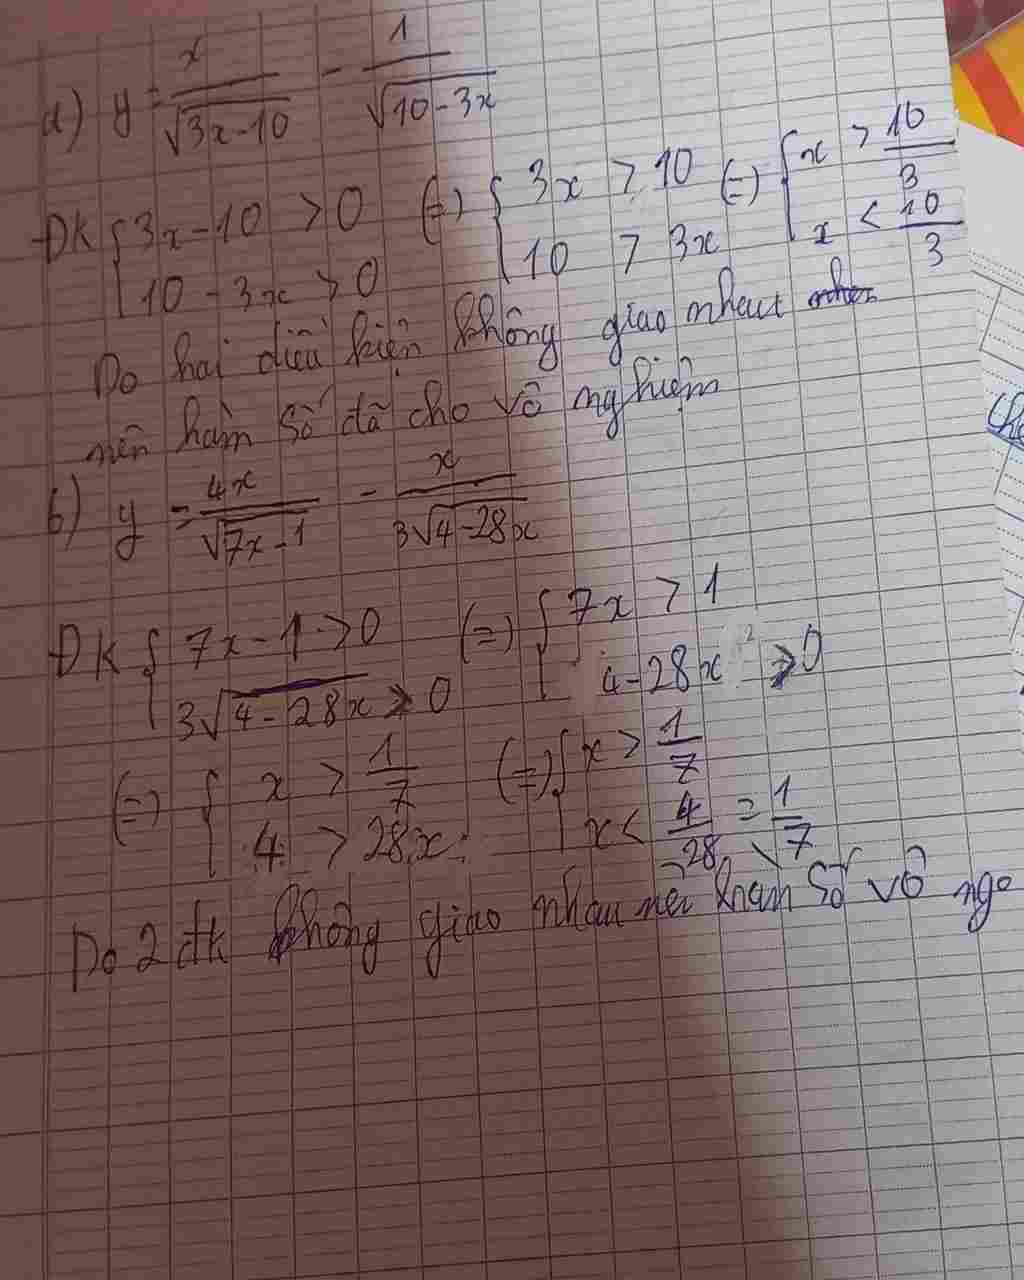 a) y = x/√(3x-10) - 1/√(10-3x)
ĐK { 3x-10 > 0 ; 10-3x > 0 (=) { 3x > 10 ; 10 > 3x (=) { x > 10/3 ; x < 10/3
Do hai điều kiện không giao nhau
nên hàm số đã cho vô nghiệm
b) y = 4x/√(7x-1) - x/3√(4-28x)
ĐK { 7x-1 > 0 ; 3√(4-28x) > 0 (=) { 7x > 1 ; 4-28x > 0
(=) { x > 1/7 ; 4 > 28x (=) { x > 1/7 ; x < 4/28 = 1/7
Do 2 đk không giao nhau nên hàm số vô